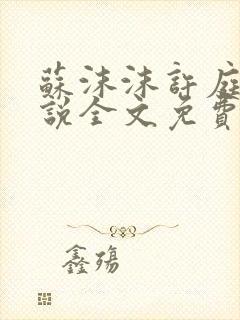 蘇沫沫許庭
說全文免費
鑫殤